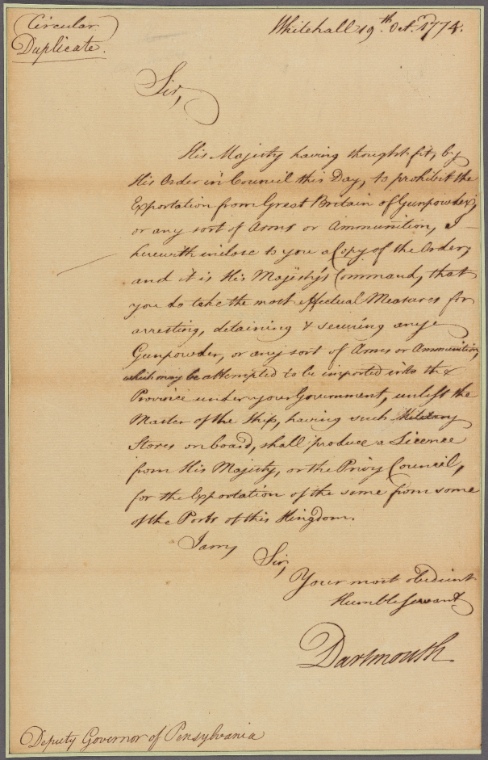 Circular
Duplicate.
Whitehall 19th. Octr. 1774.
Sir,
His Majesty having thought fit, by
His Order in Council this Day, to prohibit the
Exportation from Great Britain of Gunpowder,
or any sort of Arms or Ammunition, I
herewith inclose to you a Copy of the Order,
and it is His Majesty's Command, that
you do take the most effectual Measures for
arresting, detaining & securing any
Gunpowder, or any sort of Arms or Ammunition,
which may be attempted to be imported into the
Province under your Government, unless the
Master of the Ship, having such Military
Stores on board, shall produce a Licence
from His Majesty, or the Privy Council,
for the Exportation of the same from some
of the Ports of this Kingdom.
I am,
Sir,
Your most obedient
Humble Servant
Dartmouth
Deputy Governor of Pensylvania